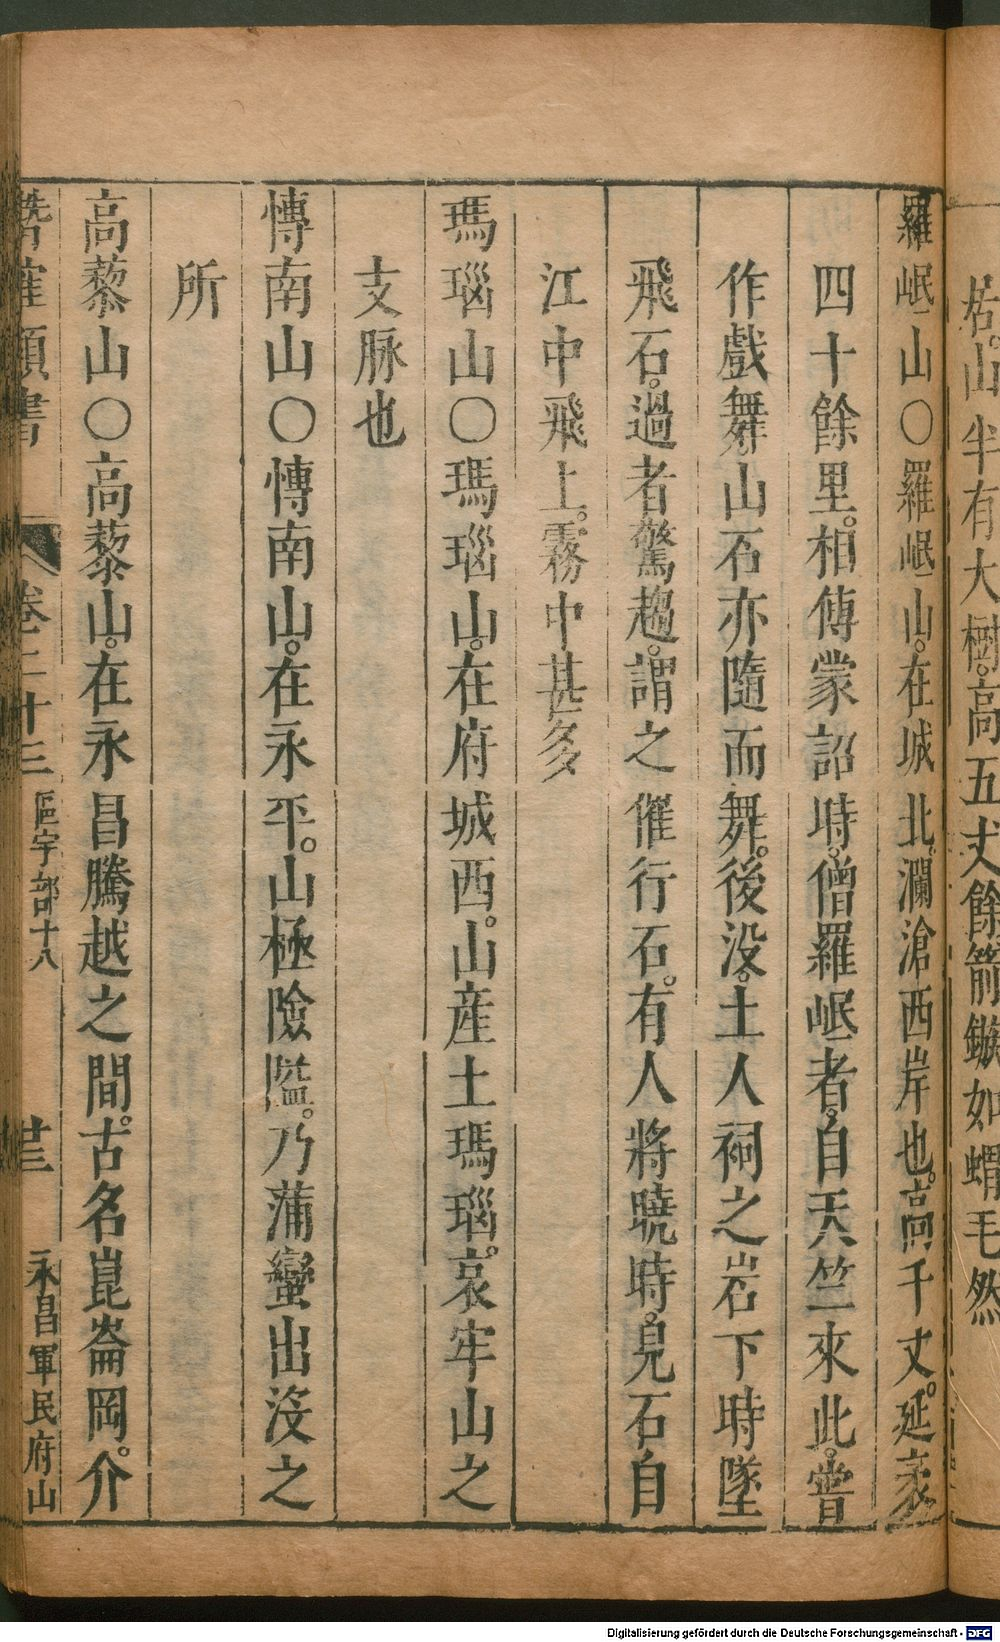 㞐。山半有大樹。高五丈餘箭鏃如蝟毛然
羅岷山○羅岷山。在城北。瀾滄西岸也。高千丈。延袤
四十餘里。相傳蒙詔時。僧羅岷者。自天竺來此。嘗
作戲舞。山石亦隨而舞。後没。土人祠之岩下時墜
飛石。過者驚趨。謂之催行石。有人將曉時。見石自
江中飛上。霧中甚多
瑪瑙山○瑪瑙山。在府城西。山産土瑪瑙。哀牢山之
支脉也
博南山○博南山。在永平。山極險隘。乃蒲蠻出没之
所
高黎山○高黎山。在永昌騰越之間。古名崑崙岡。介
潛確類書 卷二十三 區宇部十八 廿三 永昌軍民府山
Digitalisierung gefördert durch die Deutsche Forschungsgemeinschaft - DFG